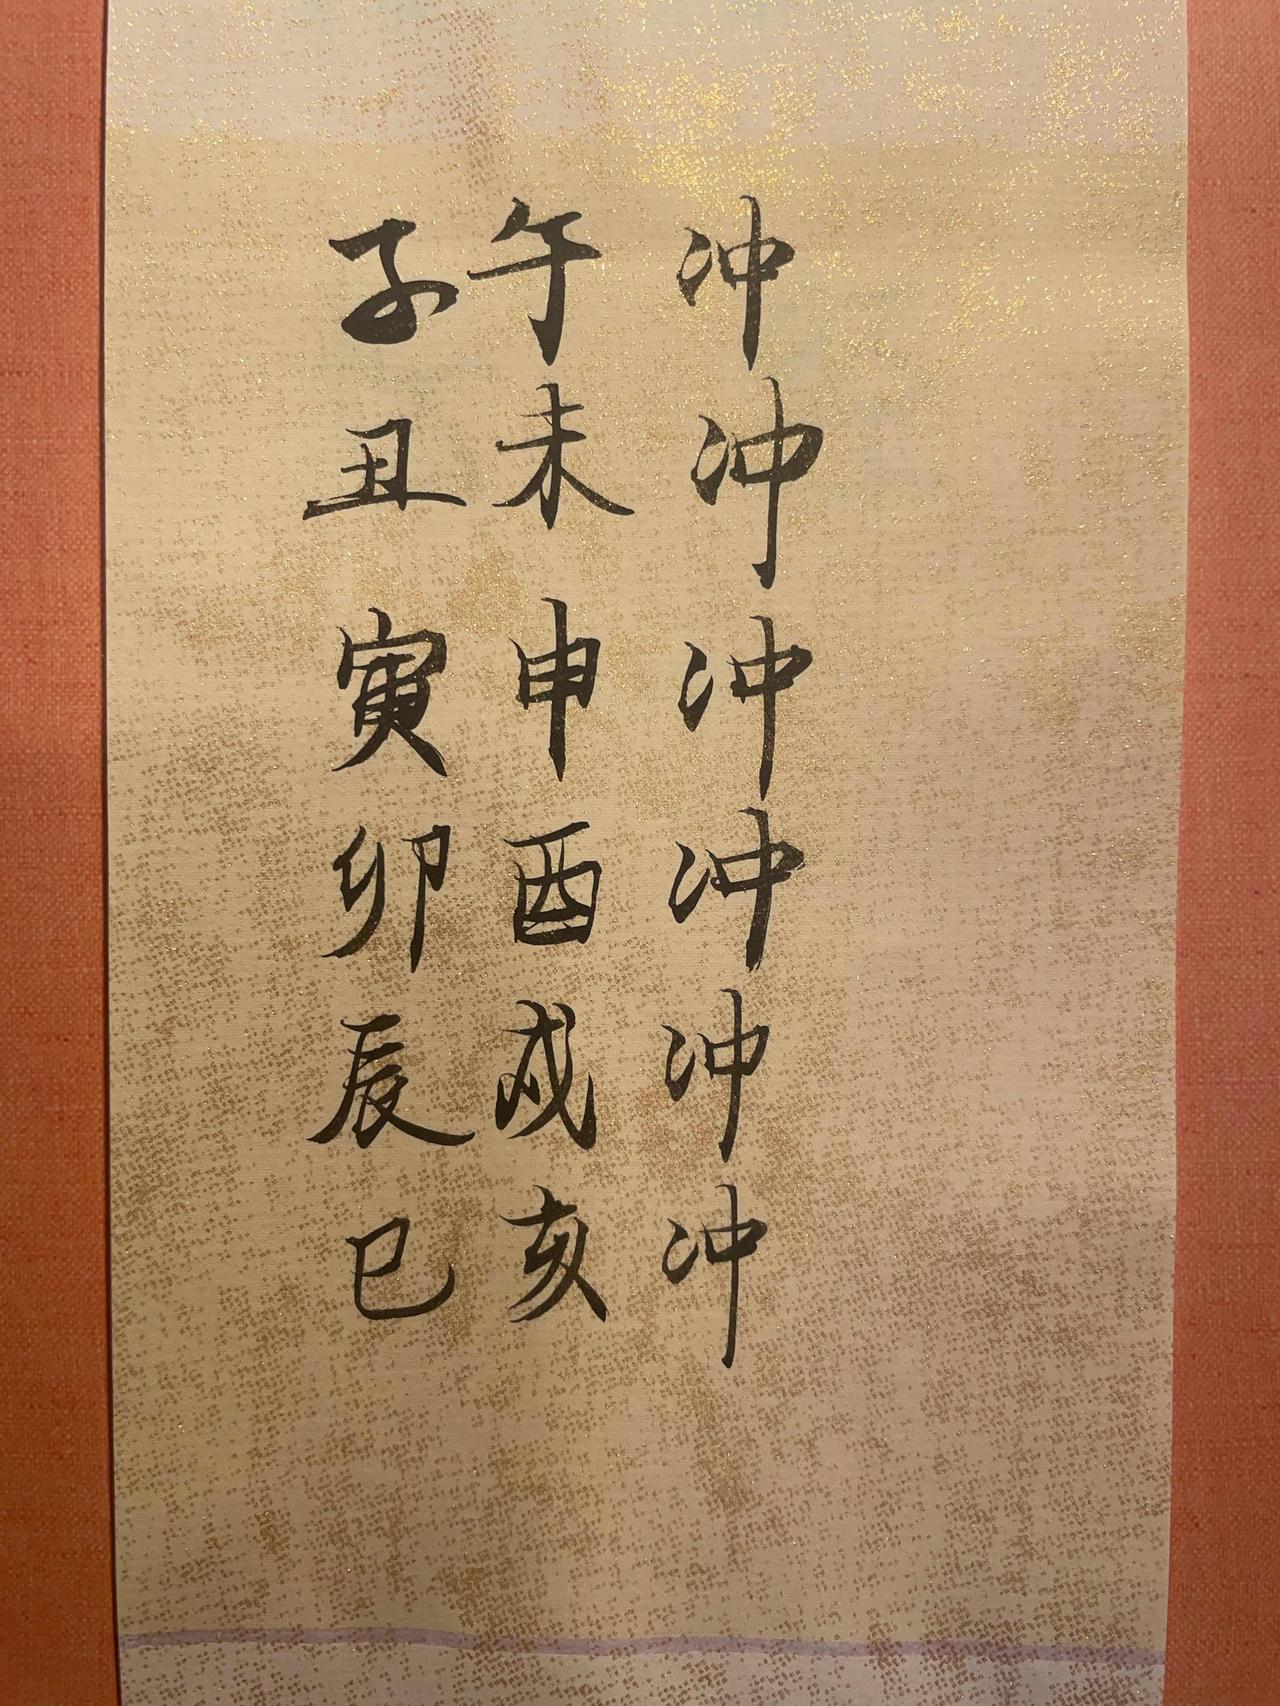 子午冲
丑未冲
寅申冲
卯酉冲
辰戌冲
巳亥冲